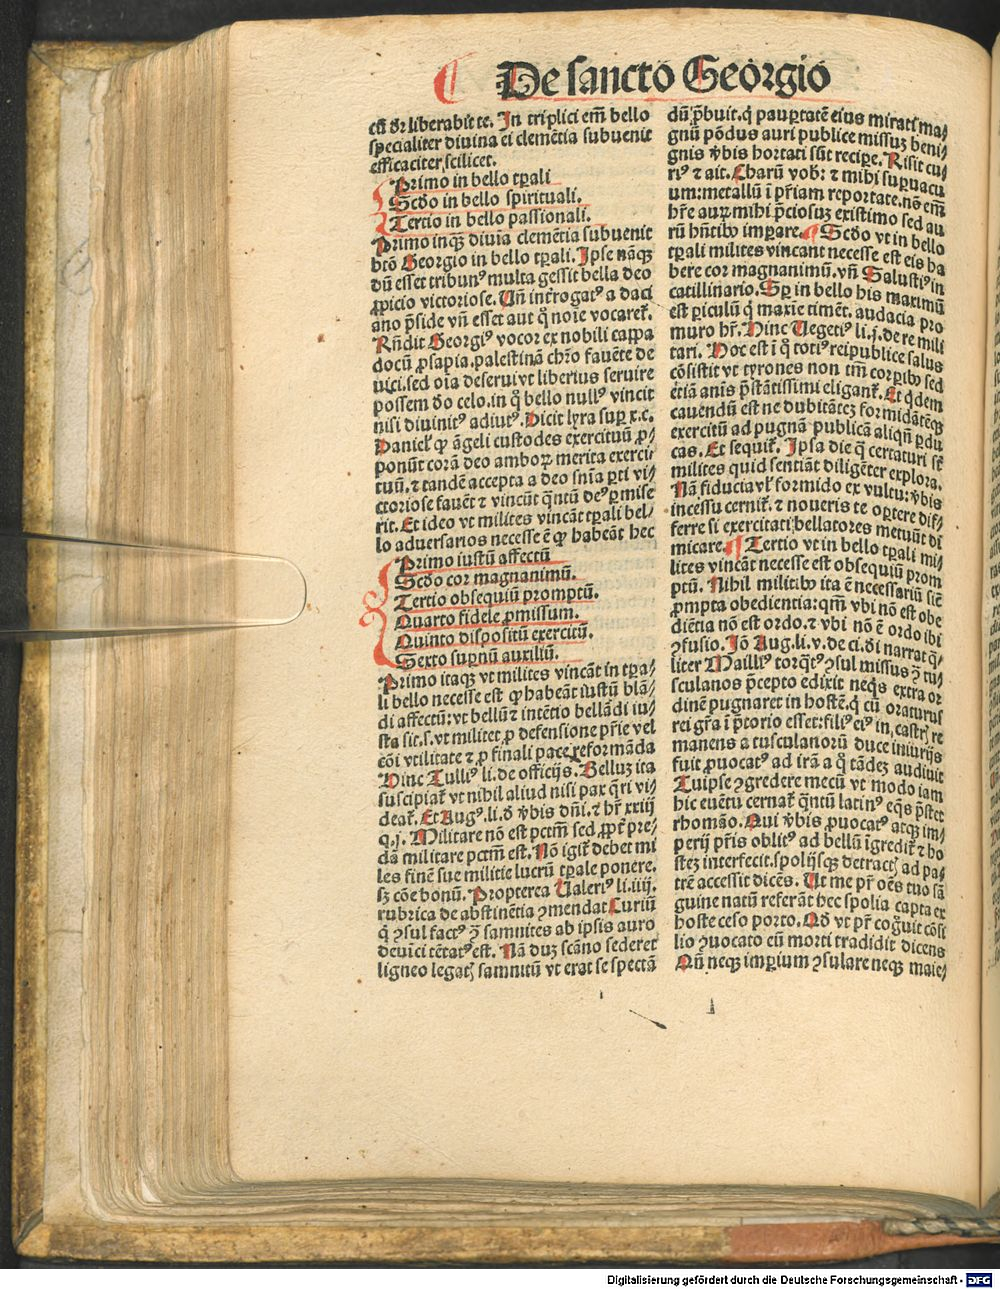 De sancto Georgio
cũ dr̃ liberabit te. In triplici em̃ bello
specialiter diuina ei clemẽtia subuenit
efficaciter, scilicet.
Primo in bello tꝑali
Scďo in bello spirituali.
Tertio in bello passionali.
Primo inqꝫ diuĩa clemẽtia subuenit
btõ Georgio in bello tꝑali. Ipse nãqꝫ
dũ esset tribunꝰ multa gessit bella deo
ꝓpicio victoriose. Vñ intr̃rogatꝰ a daci
ano p̃side vñ esset aut q̊ noĩe vocaret̃.
Rñdit Georgiꝰ vocor ex nobili cappa
docũ ꝓsapia. palestinã chr̃o fauẽte de
uici. sed oĩa deserui vt liberius seruire
possem ďo celo. in q̊ bello nullꝰ vincit
nisi diuinitꝰ adiutꝰ. Dicit lyra suꝑ x.c.
Daniel̃ ꝙ ãgeli custodes exercituũ ꝓ-
ponũt corã deo amboꝝ merita exerci-
tuũ. ⁊ tandẽ accepta a deo snĩa ꝑti vi-
ctoriose fauẽt ⁊ vincũt q̃ntũ deꝰ ꝑmise
rit. Et ideo vt milites vincãt tꝑali bel-
lo aduersarios necesse ẽ ꝙ habeãt hec
Primo iustũ affectũ
Scďo cor magnanimũ.
Tertio obsequiũ promptũ.
Quarto fidele ꝓmissum.
Quinto dispositũ exercitũ.
Sexto suꝑnũ auxiliũ.
Primo itaqꝫ vt milites vincãt in tꝑa-
li bello necesse est ꝙ habeãt iustũ blã-
di affectũ: vt bellũ ⁊ intẽtio bellãdi iu-
sta sit. s. vt militet ꝓ defensione pr̃ie vel
cõi vtilitate ⁊ ꝓ finali pace reformãda
Hinc Tulliꝰ li. de officijs. Belluꝫ ita
suscipiat̃ vt nihil aliud nisi pax q̃ri vi-
deat̃. Et Augꝰ. li. ď v̾bis dñi. ⁊ hr̃ xxiij
q.j. Militare nõ est pctm̃ sed ꝓpt̃ pre-
dã militare pctm̃ est. Nõ igit̃ debet mi
les finẽ sue militie lucrũ tꝑale ponere.
sꝫ cõe bonũ. Propterea Valeriꝰ li. iiij.
rubrica de abstinẽtia ꝯmendat Curiũ
q̇ ꝯsul factꝰ ꝯ̃ samnites ab ipsis auro
deuĩci tẽtatꝰ est. Nã duꝫ scãno sederet
ligneo legatꝭ samnitũ vt erat se spectã
dũ p̃buit. q̇ pauꝑtatẽ eius mirati ma-
gnũ põdus auri publice missuꝫ beni-
gnis v̾bis hortati sũt reciꝑe. Risit cu-
riꝰ ⁊ ait. Charũ vob̃: ⁊ mihi suꝑuacu
um: metallũ ĩ pr̃iam reportate. nõ em̃
hr̃e auꝝ mihi p̃ciosuꝫ existimo sed au
rũ hñtibꝰ imꝑare. Scďo vt in bello
tꝑali milites vincant necesse est eis ha
bere cor magnanimũ. vñ Salustiꝰ in
catillinario. Sꝑ in bello his maximũ
est ꝑiculũ q̇ maxĩe timẽt. audacia pro
muro hr̃. Hinc Vegetiꝰ li.j. de re mili
tari. Hoc est ĩ q̊ totiꝰ reipublice salus
cõsistit vt tyrones non tm̃ corꝑibꝰ sed
etiã anĩs p̃stãtissimi eligant̃. Et q̇dem
cauendũ est ne dubitãteꝫ formidãtẽqꝫ
exercitũ ad pugnã publicã aliqñ ꝑdu
cas. Et sequit̃. Ipsa die q̃ certaturi st̃
milites quid sentiãt diligẽter explora.
Nã fiducia vl̃ formido ex vultu: v̾bis
incessu cernit̃. ⁊ noueris te oꝑtere dif-
ferre si exercitati bellatores metuũt di
micare. Tertio vt in bello tꝑali mi-
lites vincãt necesse est obsequiũ prom
ptũ. Nihil militibꝰ ita ẽ necessariũ sic̃
ꝓmpta obedientia: qm̃ vbi nõ est obe
diẽtia nõ est ordo. ⁊ vbi nõ ẽ ordo ibi
ꝯfusio. Iõ Aug. li. v. de ci. di narrat q̃-
liter Mailliꝰ torq̃tꝰ ꝯsul missus ꝯ̃ tu-
sculanos p̃cepto edixit neq̇s extra or
dinẽ pugnaret in hostẽ. q̇ cũ oraturus
rei gr̃a ĩ p̃torio esset: filiꝰ eiꝰ in castrꝭ re
manens a tusculanorũ duce iniurijs
fuit ꝓuocatꝰ ad irã a q̊ tãdeꝫ audiuit
Tuipse ꝯgredere mecũ vt modo iam
hic euẽtu cernat̃ q̃ntũ latinꝰ eq̇s p̃stet
rhomão. Qui v̾bis ꝓuocatꝰ atqꝫ im-
perij pr̃is oblitꝰ ad bellũ ĩgredit̃ ⁊ ho
steꝫ interfecit. spolijsqꝫ detractꝭ ad pa-
trẽ accessit dicẽs. Vt me pr̃ oẽs tuo sã
guine natũ referãt hec spolia capta ex
hoste ceso porto. Qď vt pr̃ cog̃uit cõsi
lio ꝯuocato eũ morti tradidit dicens
Qñ neqꝫ imꝑium ꝯsulare neqꝫ maie-
Digitalisierung gefördert durch die Deutsche Forschungsgemeinschaft - DFG